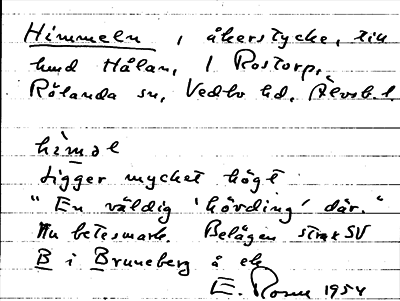 Himmeln, åkerstycke, till
hmd Hålan, 1 Rostorp,
Rölanda sn, Vedbo hd, Älvsb. l.
himəl
Ligger mycket högt.
"En väldig 'hövding' där."
Nu betesmark. Belägen strax SV
B i Bruneberg å ek
E. 1954